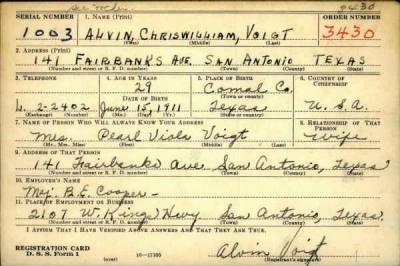 9430
SERIAL NUMBER 1. NAME (Print) ORDER NUMBER
1003 ALVIN, CHRISWILLIAM, VOIGT 3430
(First) (Middle) (Last)
2. ADDRESS (Print)
141 FAIRBANKS AVE. SAN ANTONIO TEXAS
(Number and street or R. F. D. number) (Town) (County) (State)
3. TELEPHONE 4. AGE IN YEARS 5. PLACE OF BIRTH 6. COUNTRY OF CITIZENSHIP
29 Comal Co.
DATE OF BIRTH (Town or county)
L. 2-2402 June 15, 1911 Texas U. S. A.
(Exchange) (Number) (Mo.) (Day) (Yr.) (State or country)
7. NAME OF PERSON WHO WILL ALWAYS KNOW YOUR ADDRESS 8. RELATIONSHIP OF THAT PERSON
Mrs. Pearl Viola Voigt wife
(Mr., Mrs., Miss) (First) (Middle) (Last)
9. ADDRESS OF THAT PERSON
141 Fairbanks Ave San Antonio, Texas
(Number and street or R. F. D. number) (Town) (County) (State)
10. EMPLOYER'S NAME
Maj. B. E. Cooper
11. PLACE OF EMPLOYMENT OR BUSINESS
2107 W. Kings Hwy San Antonio, Texas.
(Number and street or R. F. D. number) (Town) (County) (State)
I AFFIRM THAT I HAVE VERIFIED ABOVE ANSWERS AND THAT THEY ARE TRUE.
REGISTRATION CARD
D. S. S. Form 1 16-17105 Alvin Voigt
(Registrant's signature)